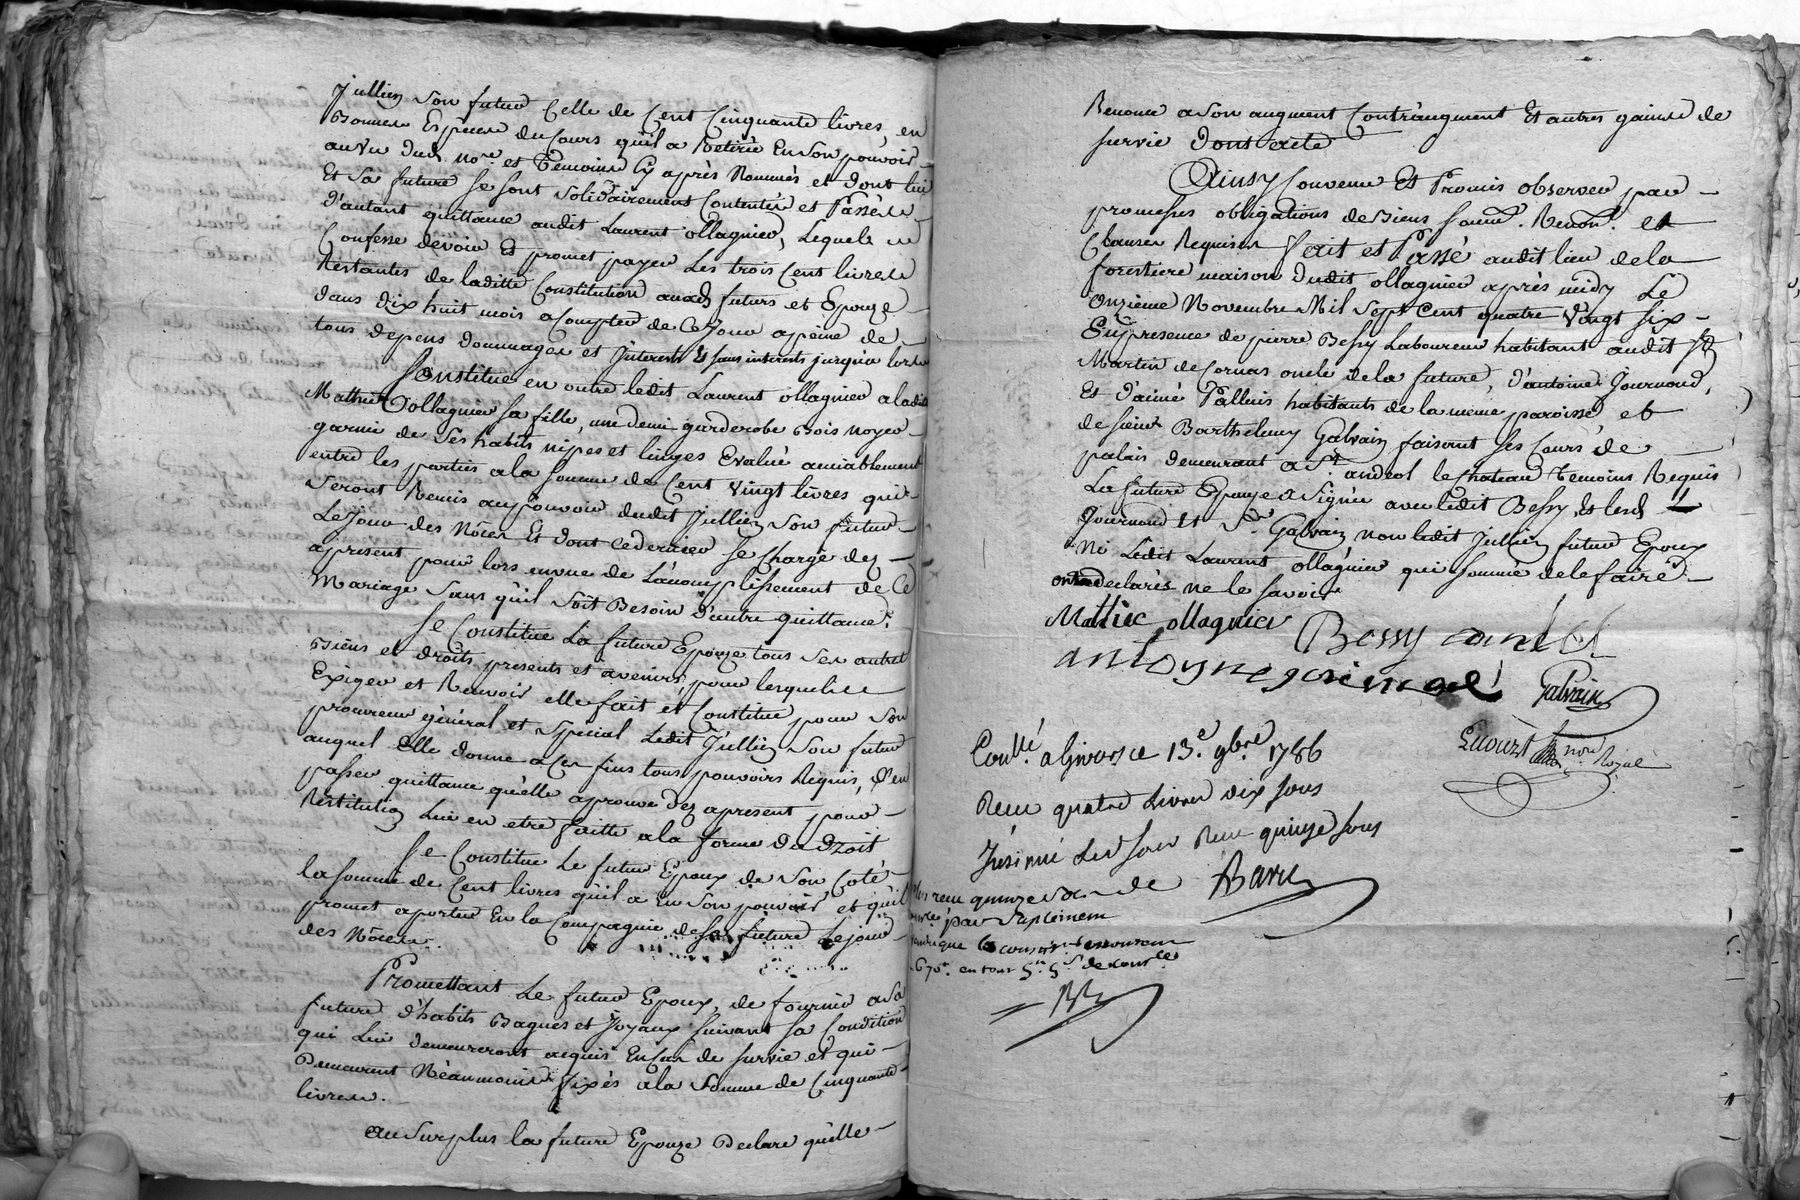 Jullien son futur Celle de Cent Cinquante livres, en
Bonnes Espèces du Cours qu'il a Retirée En son pouvoir
au vu dud. nore. et Temoins Cy après Nommés et dont lui
Et Sa future se sont Solidairement Contentés et Passés
d'autant quittance audit Laurent ollagnier, Lequel
Confesse devoir Et promet payer Les trois Cent livres
Restantes de laditte Constitution auxd. futurs et Epouze
dans dix huit mois a Compter de Ce Jour a peine de
tous depens dommages et Interets Et sans interets jusqu'a lors
Constitue en outre ledit Laurent ollagnier a ladite
Mathie ollagnier sa fille, une demi garderobe Bois Noyer
garnie de Ses habits nipes et linges Evalué amiablement
entre les parties a la Somme de Cent Vingt livres qui
Seront Remis au pouvoir dudit Jullien Son futur
Le Jour des Nôces Et dont Ce dernier se Charge dez
apresent pour lors en vue de L'acomplissement de Ce
Mariage Sans qu'il Soit Besoin d'autre quittance.
Se Constitue La future Epouze tous Ses autres
Biens et droits presents et avenirs, pour lesquels
Exiger et Recevoir elle fait et Constitue pour Son
procureur général et Special Ledit Jullien Son futur
auquel Elle donne a Ces fins tous pouvoirs Requis, d'en
passer quittance qu'elle aprouve dez apresent pour
Restitution Lui en etre faitte a la forme du Droit
Se Constitue Le futur Epoux de Son Coté
la Somme de Cent livres qu'il a En Son pouvoir et qu'il
promet aporter En la Compagnie de Sa future Le jour
des Nôces.
Promettant Le futur Epoux, de fournir a Sa
future d'habits Bagues et Joyaux Suivant Sa Condition
qui Lui demeureront acquis En Cas de Survie et qui
Demeurent Néanmoins fixés a la Somme de Cinquante
livres.
au Surplus la future Epouze Declare qu'elle
Renonce a Son augment Contr'augment Et autres gains de
Survie dont acte
Ainsy Convenu Et Promis observer par
promesses obligations de Biens Soum. Renon. et
Clauses Requises fait et Passé audit lieu de la
forestiere maison dudit ollagnier après midy Le
onzieme Novembre Mil Sept Cent quatre Vingt Six
En presence de pierre Bessy Laboureur habitant audit St
Martin de Cornas oncle de la future, d'antoine Journoud,
Et d'aimé Palluis habitants de la meme paroisse et
de Sieur Barthelemy Galvain faisant Ses Cours de
palais demeurant a St. andeol le Chateau Temoins Requis
La future Epouze a Signée avec ledit Bessy, Et lesd.
Journoud Et Sr. Galvain non ledit Jullien futur Epoux
Ni Ledit Laurent ollagnier qui Sommé de le faire
ont declarés ne le Savoir
Mattie ollagnier Bessy
antoyne
Galvain
nore. Royal
Conllé. a Givors ce 13e. 9bre. 1786
Recu quatre Livres dix sous
Insinué Led. jour Recu quinze sous
Barie
recu quinze s
par Suplement
en tout